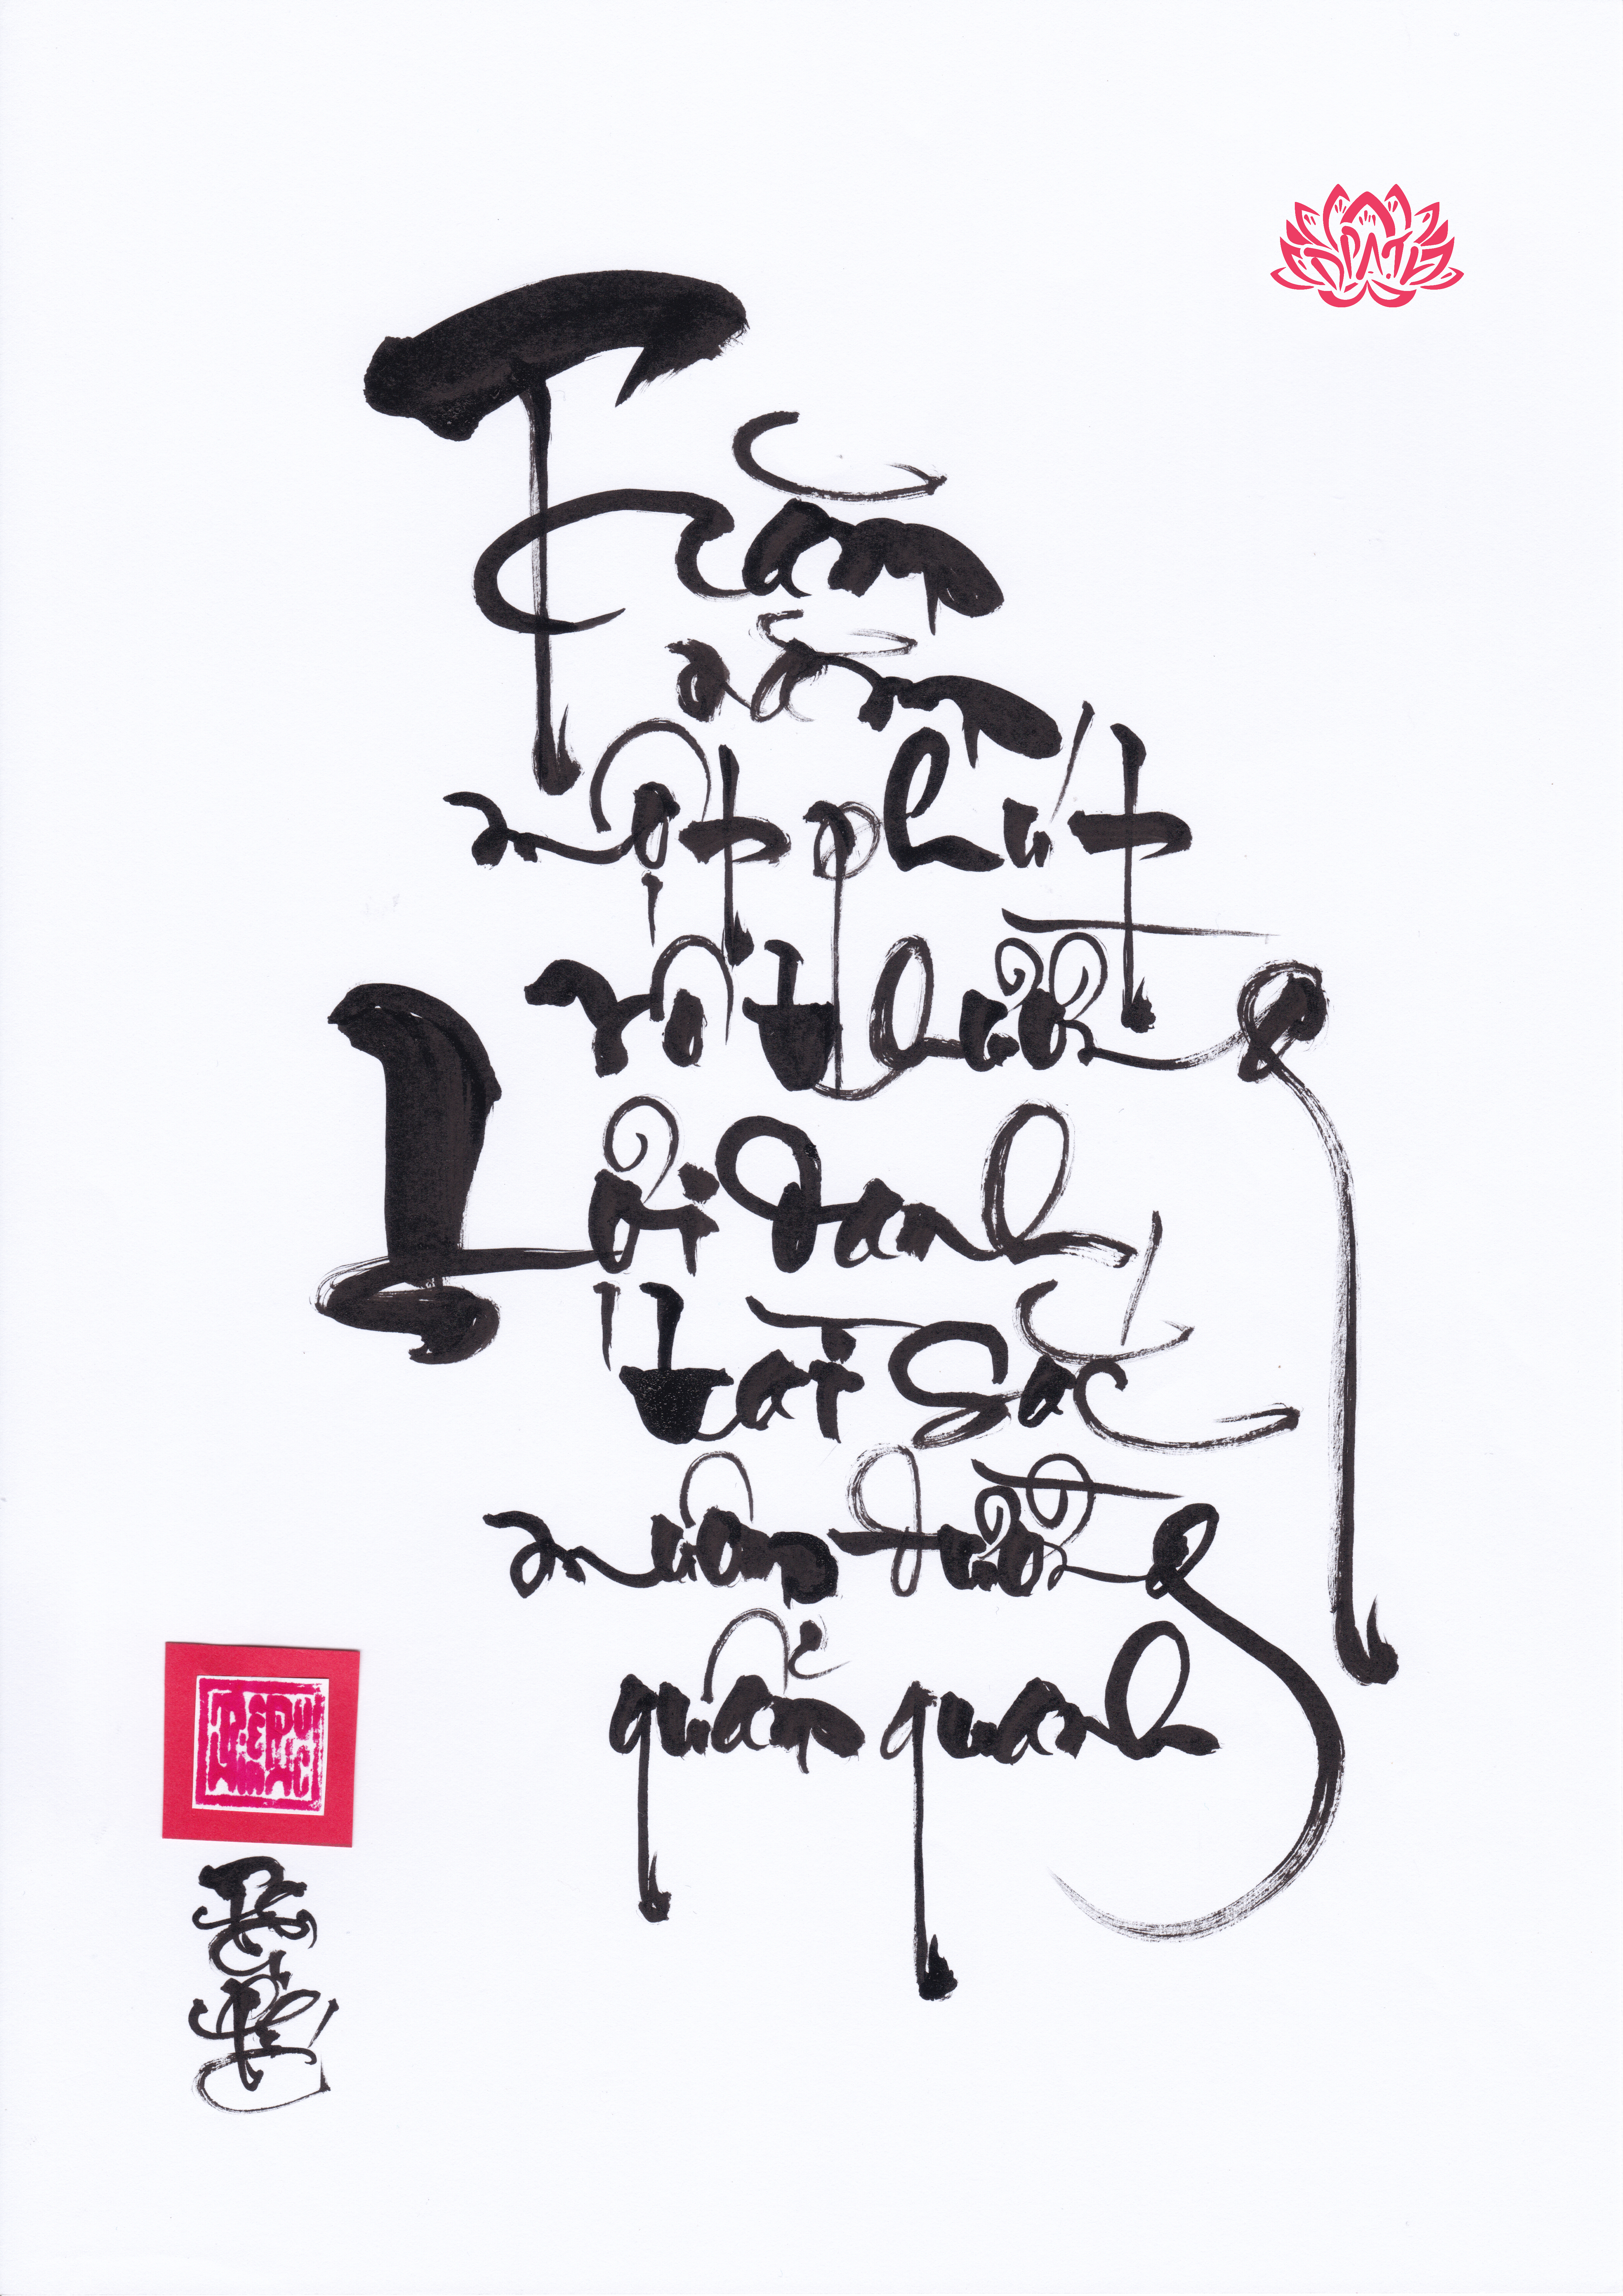 Trăm
năm
một phút
vô thường
Lợi danh
tài sắc
muôn đường
quẩn quanh